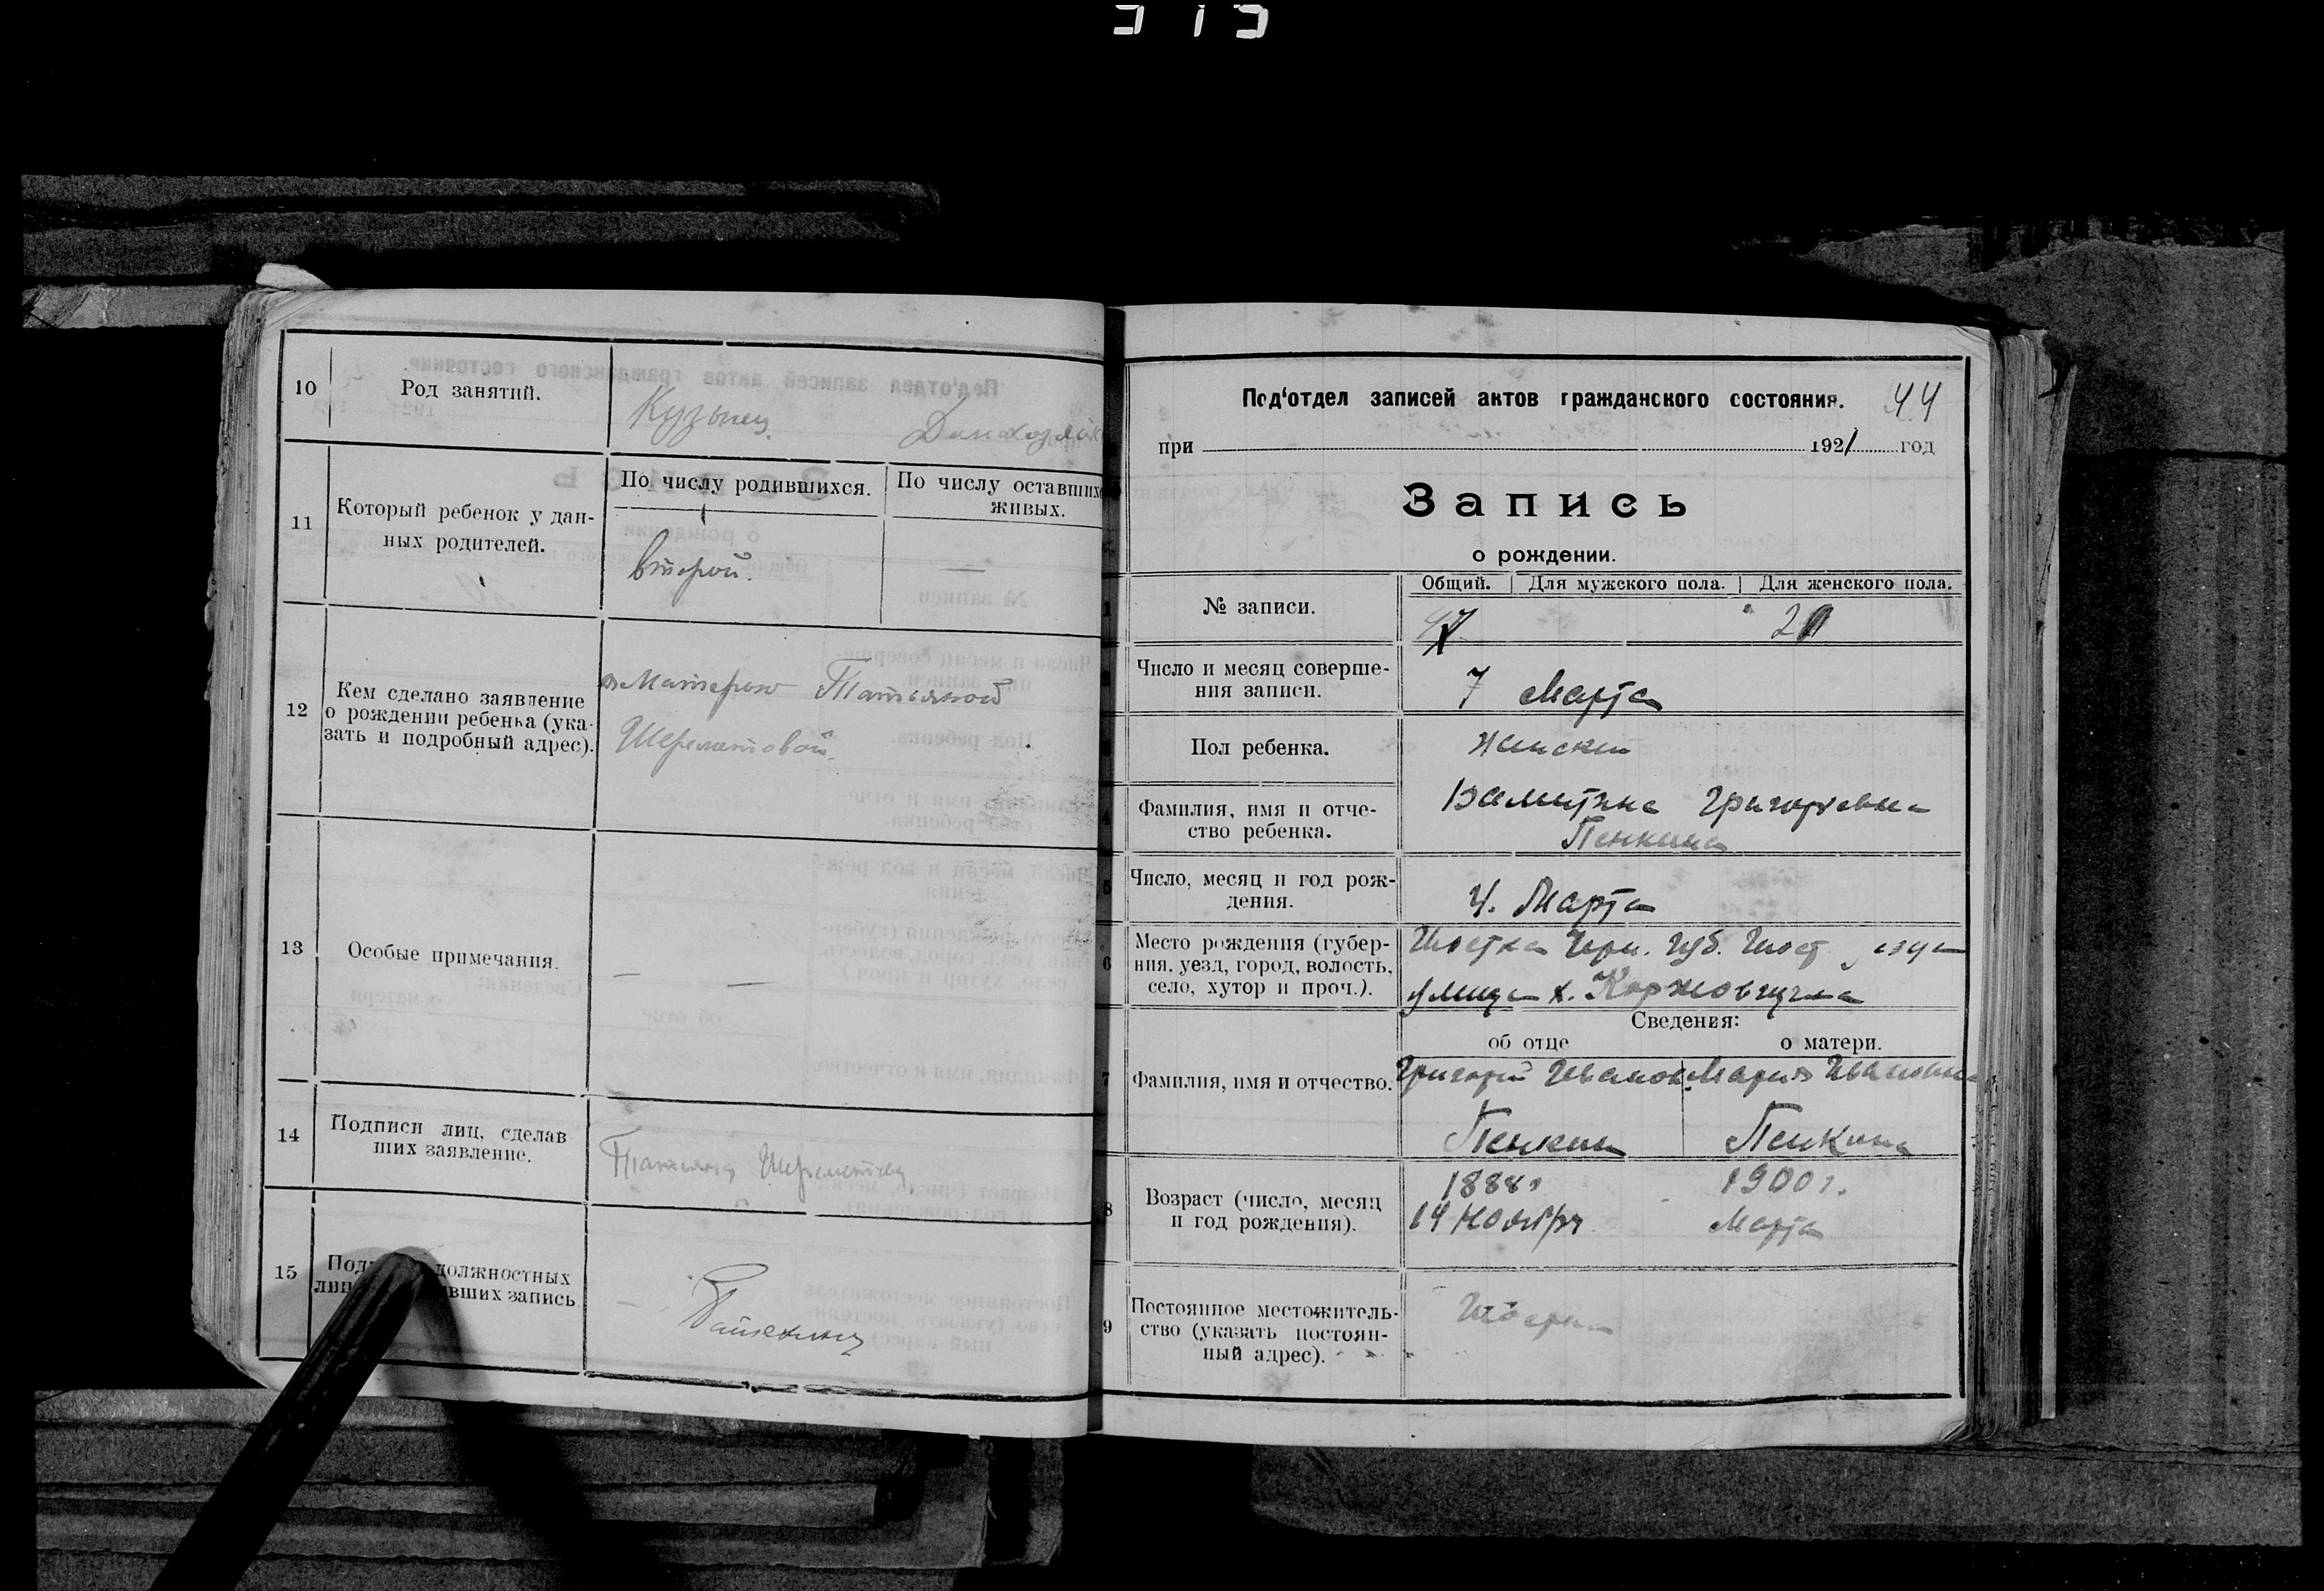 10
Род занятий.
Кузнец.
Домохозяйк
11
Который ребенок у дан-
ных родителей.
По числу родившихся.
По числу оставших
живых.
второй.
—
12
Кем сделано заявление
о рождении ребенка (ука-
зать и подробный адрес).
Матерью Татьяной
Шереметовой.
13
Особые примечания.
— —
14
Подписи лиц, сделав
ших заявление.
Татьяна
15
должностных
вших запись
44
Под'отдел записей актов гражданского состояния.
при 1921 год
Запись
о рождении.
Общий. Для мужского пола. Для женского пола.
1
№ записи.
47
Число и месяц соверше-
ния записи.
7 Марта
Пол ребенка.
женский
4
Фамилия, имя и отче-
ство ребенка.
Валентина Григорьевна
Пенкина
5
Число, месяц и год рож-
дения.
4. Марта
6
Место рождения (губер-
ния, уезд, город, волость,
село, хутор и проч.).
Шостка Черн. губ. Шост. уезда
улица х. Коржовщина
Сведения:
об отце о матери.
7
Фамилия, имя и отчество.
Григорий Иванов Мария Ивановна
Пенкин Пенкина
8
Возраст (число, месяц
и год рождения).
1888г 1900 г.
14 ноября Марта
9
Постоянное местожитель-
ство (указать постоян-
ный адрес).
Шостка